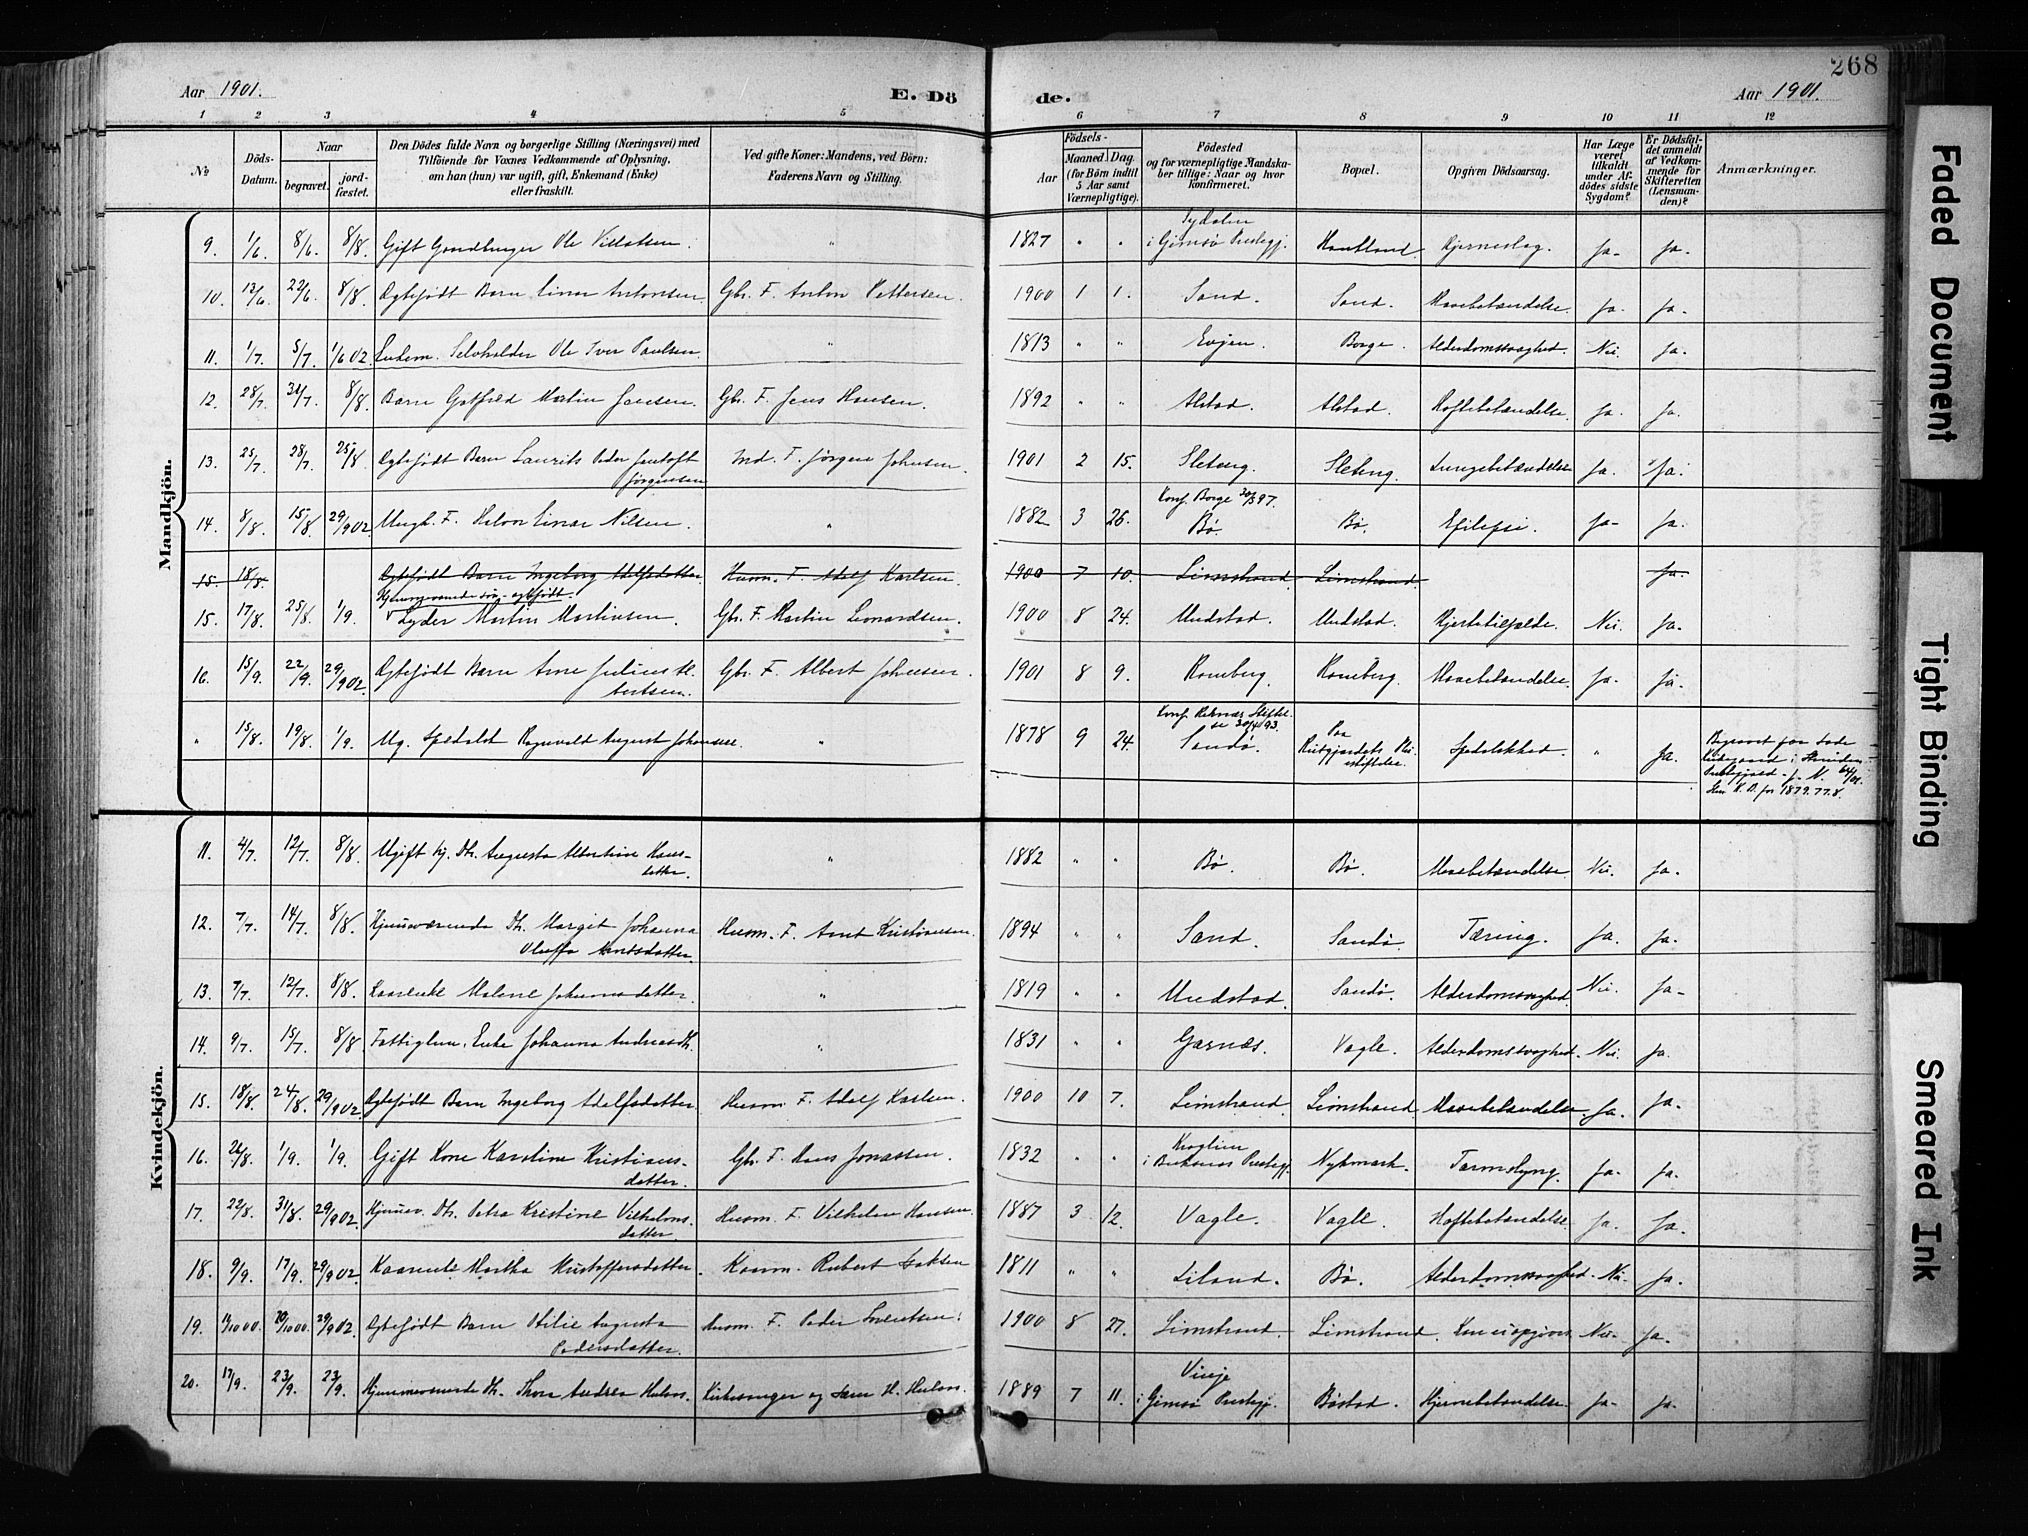 268
Aar 1901.
E. Dö
de.
Aar 1901.
1 2 3 4 5 6 7 8 9 10 11 12
№
Döds-Datum.
Naar
begravet.
jord-fæstet.
Den Dödes fulde Navn og borgerlige Stilling (Næringsvei) med
Tilföiende for Voxnes Vedkommende af Oplysning,
om han (hun) var ugift, gift, Enkemand (Enke)
eller fraskilt.
Ved gifte Koner: Mandens, ved Börn:
Faderens Navn og Stilling.
Födsels-
Aar
Maaned Dag
(for Börn indtil
5 Aar samt
Værnepligtige).
Födested
og for værnepligtige Mandska-
ber tillige: Naar og hvor
konfirmeret.
Bopæl.
Opgiven Dödsaarsag.
Har Læge
været
tilkaldt
under Af-
dödes sidste
Sygdom?
Er Dödsfal-
det anmeldt
af Vedkom-
mende for
Skifteretten
(Lensman-
den)?
Anmærkninger.
Mandkjön.
9. 1/6. 8/6. 8/8. Gift Ole " 1827 " " i Gimsø Prestegj. Ja. Ja.
10. 12/6. 22/6. 8/8. Ægtefødt Barn Einar Antonsen. Gbr. F. Anton Pettersen. 1900 1 1. Sand. Sand. Mavebetændelse. Ja. Ja.
11. 1/7. 5/7. 1/6 02. Enkem. Selvholder Ole Iver Paulsen. " 1813 " " Evjen. Borge. Alderdomssvaghed. Nei. Ja.
12. 28/7. 31/7. 8/8. Barn Gotfred Martin Jensen. Gbr. F. Jens Hansen. 1892 " " Alstad. Alstad. Hoftebetændelse. Ja. Ja.
13. 25/7. 28/7. 25/8. Ægtefødt Barn Laurits Peder Jentoft Jørgensen. Ind. F. Jørgen Johnsen. 1901 2 15. Sleteng. Sleteng. Lungebetændelse. Ja. Ja.
14. 8/8. 15/8. 29/9 02. Ungk. F. Einar Nilsen. " 1882 3 26. Konf. Borge 97. Bø. Bø. Epilepsi. Ja. Ja.
15. 18/8. Ægtefødt Barn Ingeborg Adolfsdatter. Husm. F. Adolf Karlsen. 1900 7 10. Limstrand. Limstrand. Ja.
15. 17/8. 25/8. 1/9. Hjemmeværende søn ægtefødt. Lyder Martin Martinsen. Gbr. F. Martin Leonardsen. 1900 8 24. Undstad. Undstad. Hjertetilfælde. Nei. Ja.
16. 15/9. 22/9. 29/9 02. Ægtefødt Barn Arne Julius Albertsen. Gbr. F. Albert Johnsen. 1901 8 9. Ramberg. Ramberg. Mavebetændelse. Ja. Ja.
" 15/8. 19/8. 1/9. Ug. Spedalsk Ragnvald August Johansen. " 1878 9 24. Konf. Reknæs Stiftelse 93. Sandø. Paa Reitgjærdets Pleiestiftelse. Spedalskhed. " Ja. Begravet paa Lade Kirkegaard i Strinden Prestegjæld
Kvindekjön.
11. 4/7. 12/7. 8/8. Ugift hj. Dtr. Augusta Albertine Hansdatter. " 1882 " " Bø. Bø. Mavebetændelse. Nei. Ja.
12. 7/7. 14/7. 8/8. Hjemværende Dtr. Margit Johanna Oluffa Arntsdatter. Husm. F. Arnt Kristiansen. 1894 " " Sand. Sandø. Tæring. Ja. Ja.
13. 7/7. 12/7. 8/8. Kaarenke Malene Johannadatter. " 1819 " " Undstad. Sandø. Alderdomssvaghed. Nei. Ja.
14. 9/7. 15/7. 8/8. Fattiglem, Enke Johanna Andreasdtr. " 1831 " " Garnæs. Vagle. Alderdomssvaghed. Nei. Ja.
15. 18/8. 24/8. 29/9 02. Ægtefødt Barn Ingeborg Adolfsdatter. Husm. F. Adolf Karlsen. 1900 10 7. Limstrand. Limstrand. Mavebetændelse. Ja. Ja.
16. 26/8. 1/9. 1/9. Gift Kone Karoline Kristiansdatter. Gbr. F. Hans Jonassen. 1832 " " i Buksnæs Prestegj. Nykmark. Tarmslyng. Ja. Ja.
17. 22/8. 31/8. 29/9 02. Hjemv. Dtr. Petra Kristine Vilhelmsdatter. Husm. F. Vilhelm Hansen. 1887 3 12. Vagle. Vagle. Hoftebetændelse. Ja. Ja.
18. 9/9. 17/9. 29/9 02. Kaarenke Martha Kristoffersdatter. Kaarm. Rubert Isaksen 1811 " " Liland. Bø. Alderdomssvaghed. Nei. Ja.
19. 29/9 02. Ægtefødt Barn Otilie Augusta Pedersdatter. Husm. F. Peder 1900 8 27. Limstrand. Limstrand. Nei. Ja.
20. 17/9. 23/9. 23/9. Hjemmeværende Dtr. Thora Andrea Kirkesanger og 1889 7 11. i Gimsø Prestegj. Bøstad. Hjernebetændelse. Ja. Ja.
Faded Document
Tight Binding
Smeared Ink